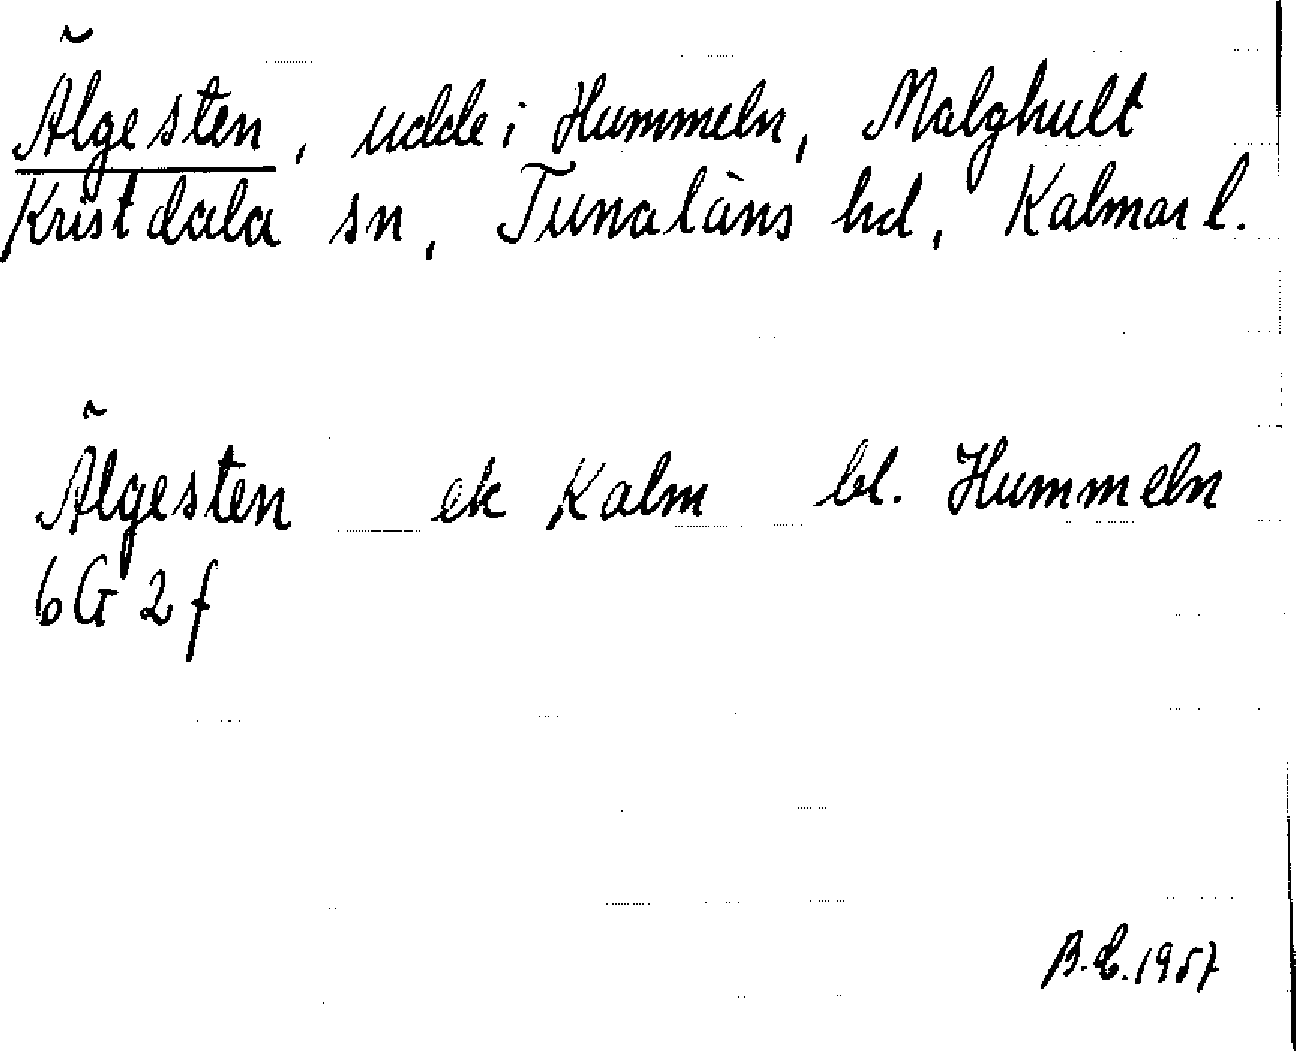 Älgesten, udde i Hummeln, Malghult
Kristdala sn, Tunaläns hd, Kalmar l.
Älgesten ek Kalm bl. Hummeln
6G 2f
B.E. 1957